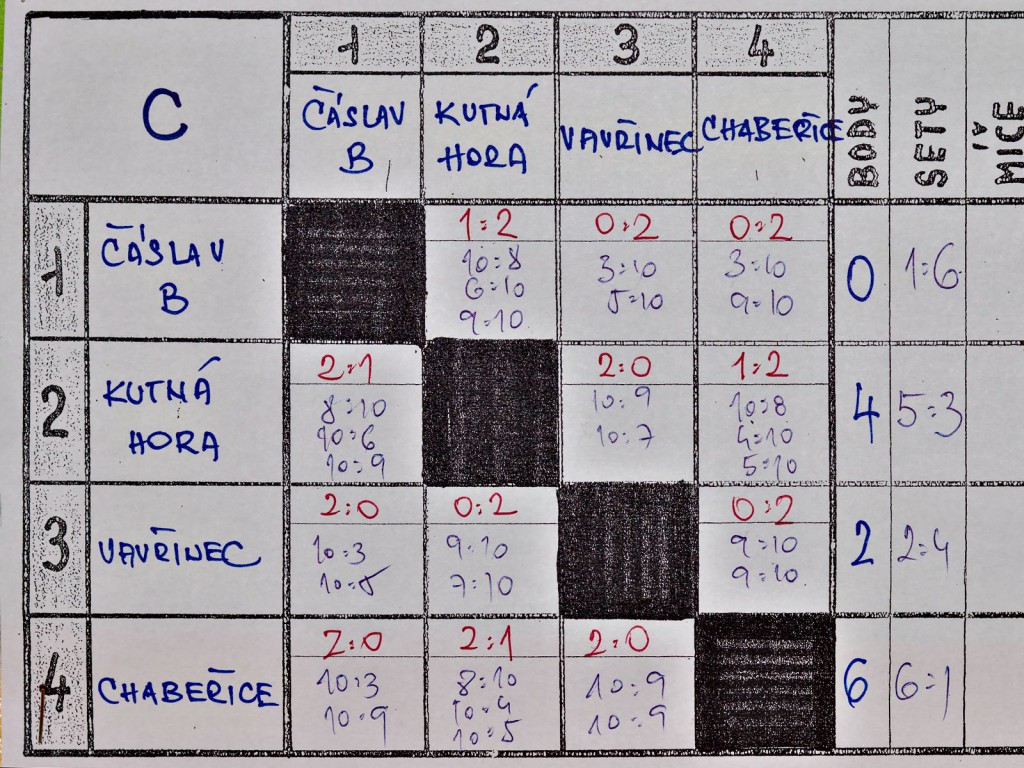 1 2 3 4
C ČÁSLAV B KUTNÁ HORA VAVŘINEC CHABEŘICE BODY SETY MÍČE
1 ČÁSLAV B 1:2 0:2 0:2 0 1:6
10:8 3:10 3:10
6:10 5:10 9:10
9:10
2 KUTNÁ HORA 2:1 2:0 1:2 4 5:3
8:10 10:9 10:8
10:6 10:7 4:10
10:9 5:10
3 VAVŘINEC 2:0 0:2 0:2 2 2:4
10:3 9:10 9:10
10:5 7:10 9:10
4 CHABEŘICE 2:0 2:1 2:0 6 6:1
10:3 8:10 10:9
10:9 10:4 10:9
10:5